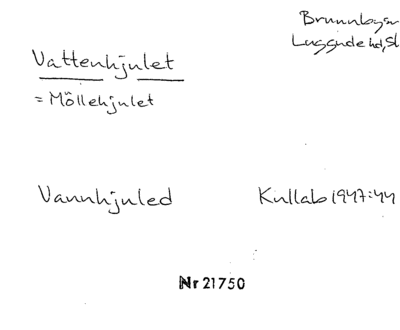 Brunnby sn
Luggude hd, Sk
Vattenhjulet
= Möllehjulet
Vannhjuled
Kullab 1947:44
Nr 21750